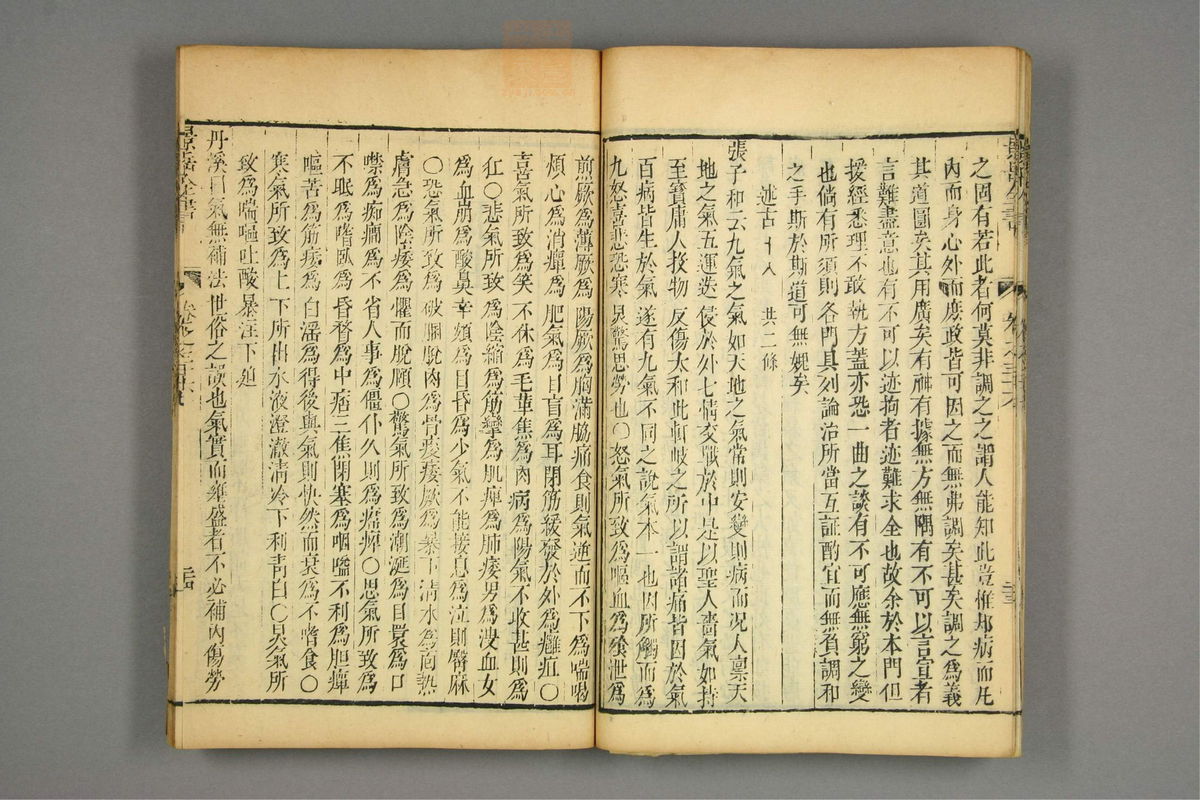 之固有若此者何莫非調之之謂人能知此豈惟却病而凡
內而身心外而庶政皆可因之而無弗調矣甚矣調之為義
其道圓矣其用廣矣有神有據無方無隅有不可以言宣者
言難盡意也有不可以迹拘者迹難求全也故余於本門但
援經悉理不敢執方蓋亦恐一曲之談有不可應無窮之變
也倘有所須則各門具列論治所當互証酌宜而無負調和
之手斯於斯道可無媿矣
述古 共二條
張子和云九氣之氣如天地之氣常則安變則病而況人稟天
地之氣五運迭侵於外七情交戰於中是以聖人嗇氣如持
至寶庸人投物反傷太和此軒岐之所以謂諸痛皆因於氣
百病皆生於氣遂有九氣不同之說氣本一也因所觸而為
九怒喜悲恐寒炅驚思勞也○怒氣所致為嘔血為飧泄為
煎厥為薄厥為陽厥為胸滿脇痛食則氣逆而不下為喘喝
煩心為消癉為肥氣為目盲為耳閉筋緩發於外為癰疽○
喜氣所致為笑不休為毛革焦為肉病為陽氣不收甚則為
狂○悲氣所致為陰縮為筋攣為肌痺為肺痿男為溲血女
為血崩為酸鼻辛頞為目昏為少氣不能接息為泣則臂麻
○恐氣所致為破䐃脫肉為骨痠痿厥為暴下清水為面熱
膚急為陰痿為懼而脫頤○驚氣所致為潮涎為目瞏為口
噤為痴癎為不省人事為僵仆久則為㾏痺○思氣所致為
不眠為嗜臥為昏瞀為中痞三焦閉塞為咽嗌不利為胆癉
嘔苦為筋痿為白淫為得後與氣則快然而衰為不嗜食○
寒氣所致為上下所出水液澄澈清冷下利青白○炅氣所
致為喘嘔吐酸暴注下迫
丹溪曰氣無補法世俗之誤也氣實而壅盛者不必補內傷勞
景岳全書
二十三
景岳全書
二十四